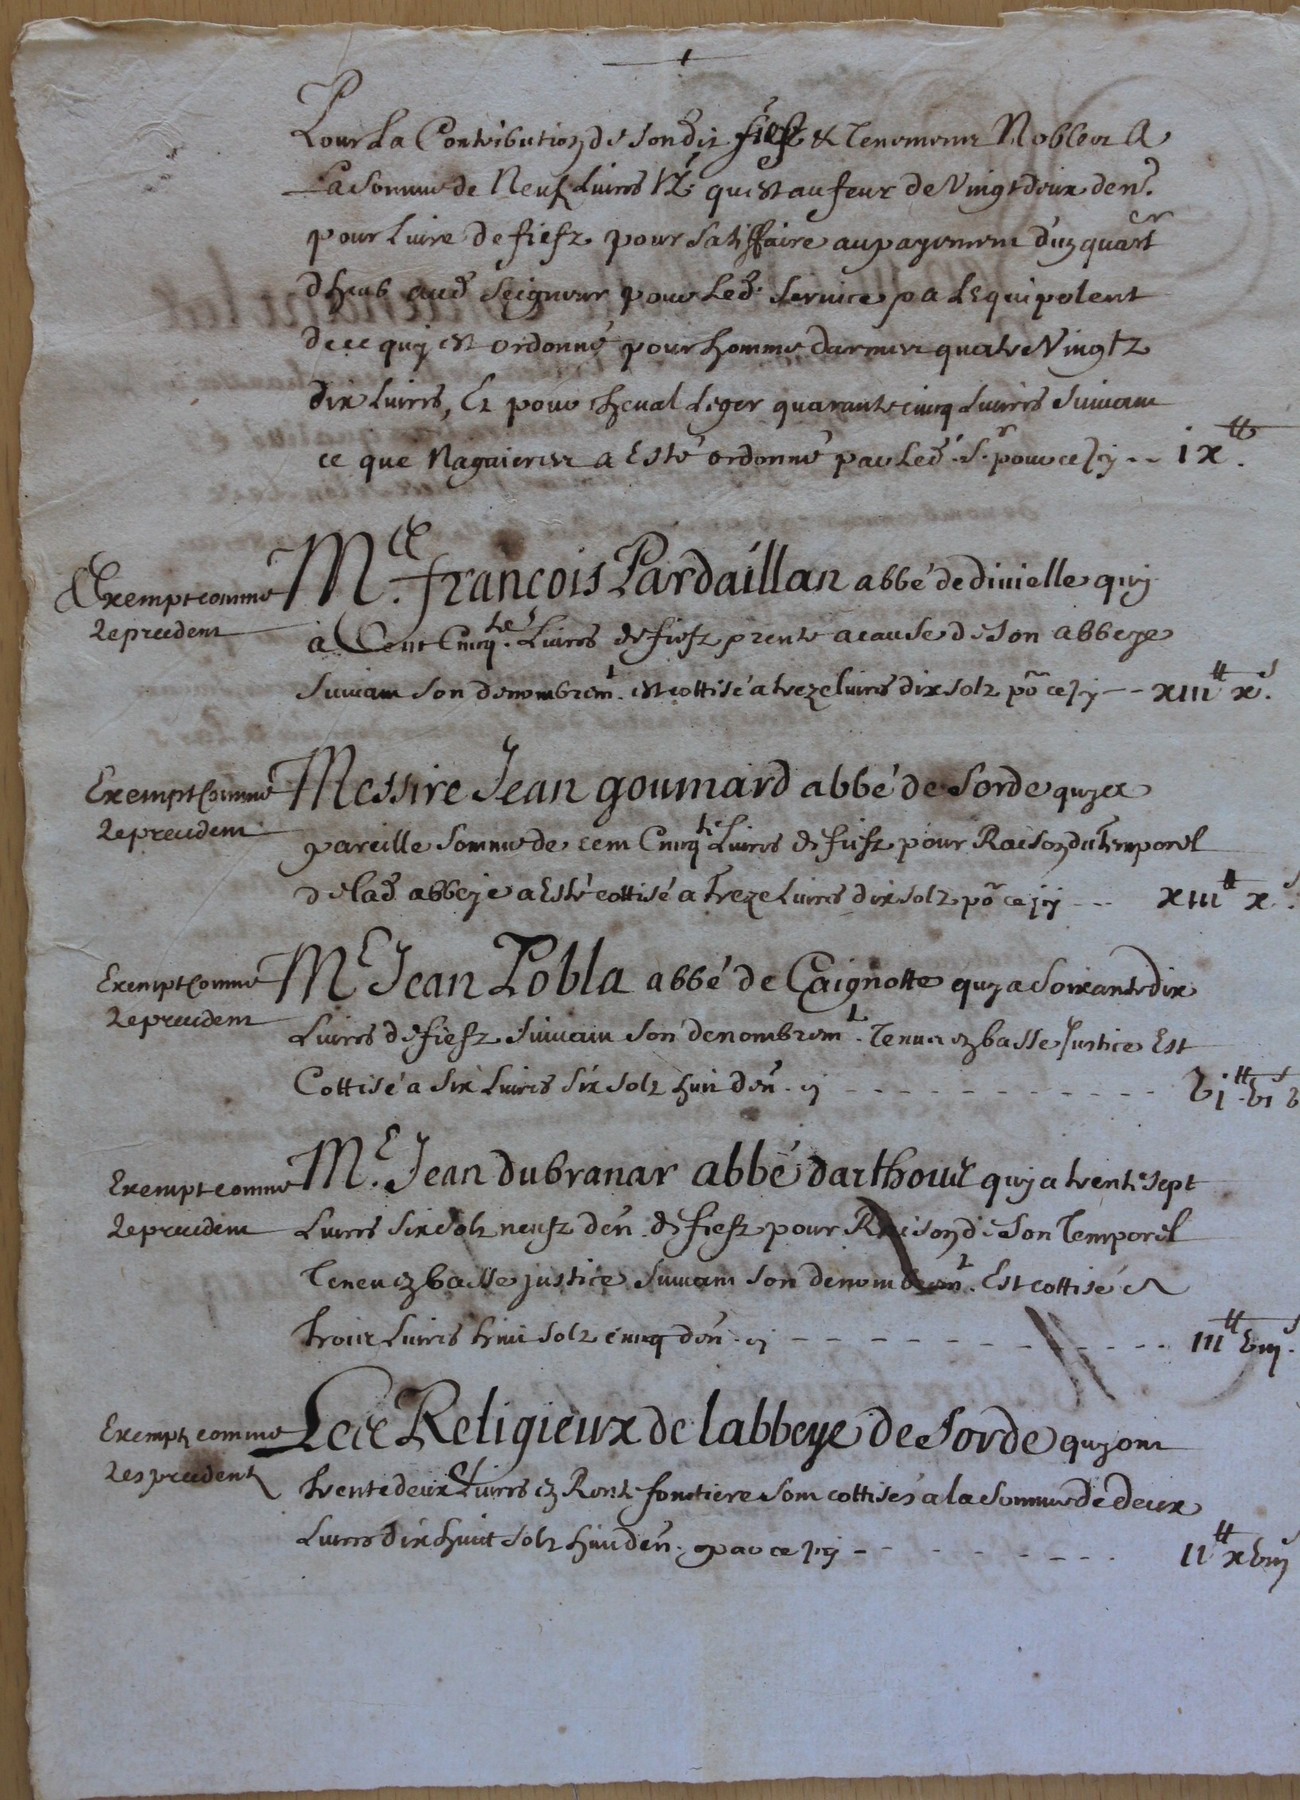 Pour La Contribution de Son dit fief & Tenement Nobles A
La Somme de Neuf Livres tz. qui est au feur de Vingt deux den.rs
pour Livre de fiefz pour Satisffaire au payement d'un quart.er
deheub aud. Seigneur pour Led. Service p a Lequipolent
de ce quy est ordonné pour homme darmes quatre Vingtz
dix Livres, Et pour Cheval Leger quarante cincq Livres Suivam
ce que Naguieres a Esté ordonné par Led. S.r pour ce Jcy -- ix.tt
Exempt comme
Le precedent
M.re françois Pardaillan abbé de divielle quy
à Cent Cincq.te Livres de fiefz p rente a cause de Son abbeye
Suivam Son denombrem.t est cottisé a treze Livres dix Solz po.r ce Jcy -- xiii.tt x.s
Exempt Comme
Le precedent
Messire Jean goumard abbé de Sorde quy a
pareille Somme de cent Cincq.te Livres de fiefz pour Raison du Temporel
de Lad. abbeye a Esté cottisé a Treze Livres dix Solz po.r ce jcy --- xiii.tt x.s
Exempt Comme
Le precedent
M.e Jean Pobla abbé de Caignotte quy a Soixante dix
Livres de fiefz Suivam Son denombrem.t Tenu en basse Justice Est
Cottisé a Six Livres Six Solz huit den. cy - - - - - - - - - - - - vi.tt vi.s v
Exempt comme
Le precedent
M.e Jean dubranar abbé darthous quy a trente Sept
Livres Six Solz neufz den. de fiefz pour Raison de Son Temporel
Tenu en basse justice Suivam Son denombrem.t Est cottisé A
trois Livres huit Solz cincq den. cy - - - - - - - - - - - iii.tt viii.s
Exemptz comme
Les precedentz
Les Religieux de labbeye de Sorde quy ont
trente deux Livres en Rente fonctiere Sont cottisés a la Somme de deux
Livres dix huit Solz huit den. par ce Jcy - - - - - - - - ii.tt xviii.s